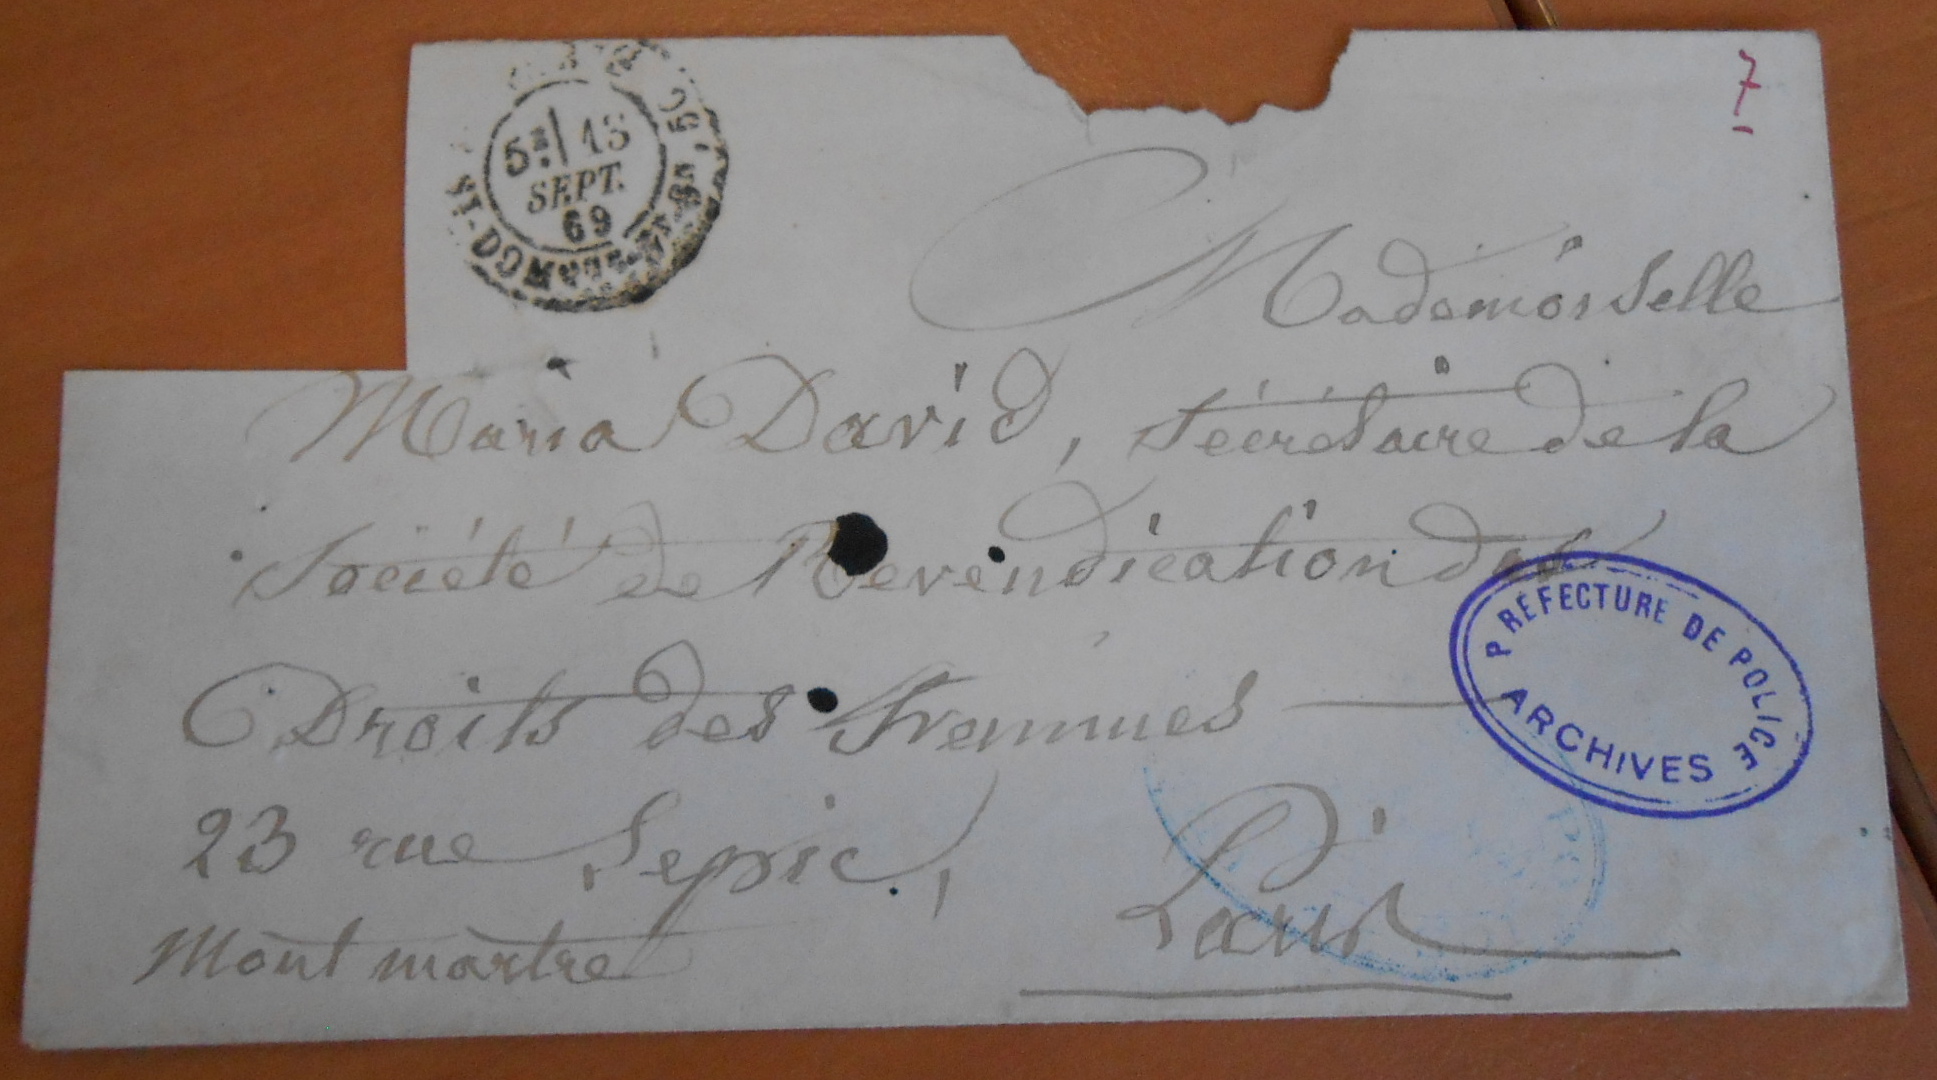 5E 13
SEPT.
69
ST-DOMque-St-Gn, 56
7
Mademoiselle
Maria David, Sécrétaire de la
Société de Revendication des
Droits des Femmes
23 rue Lepic,
Montmartre
Paris
PRÉFECTURE DE POLICE
ARCHIVES